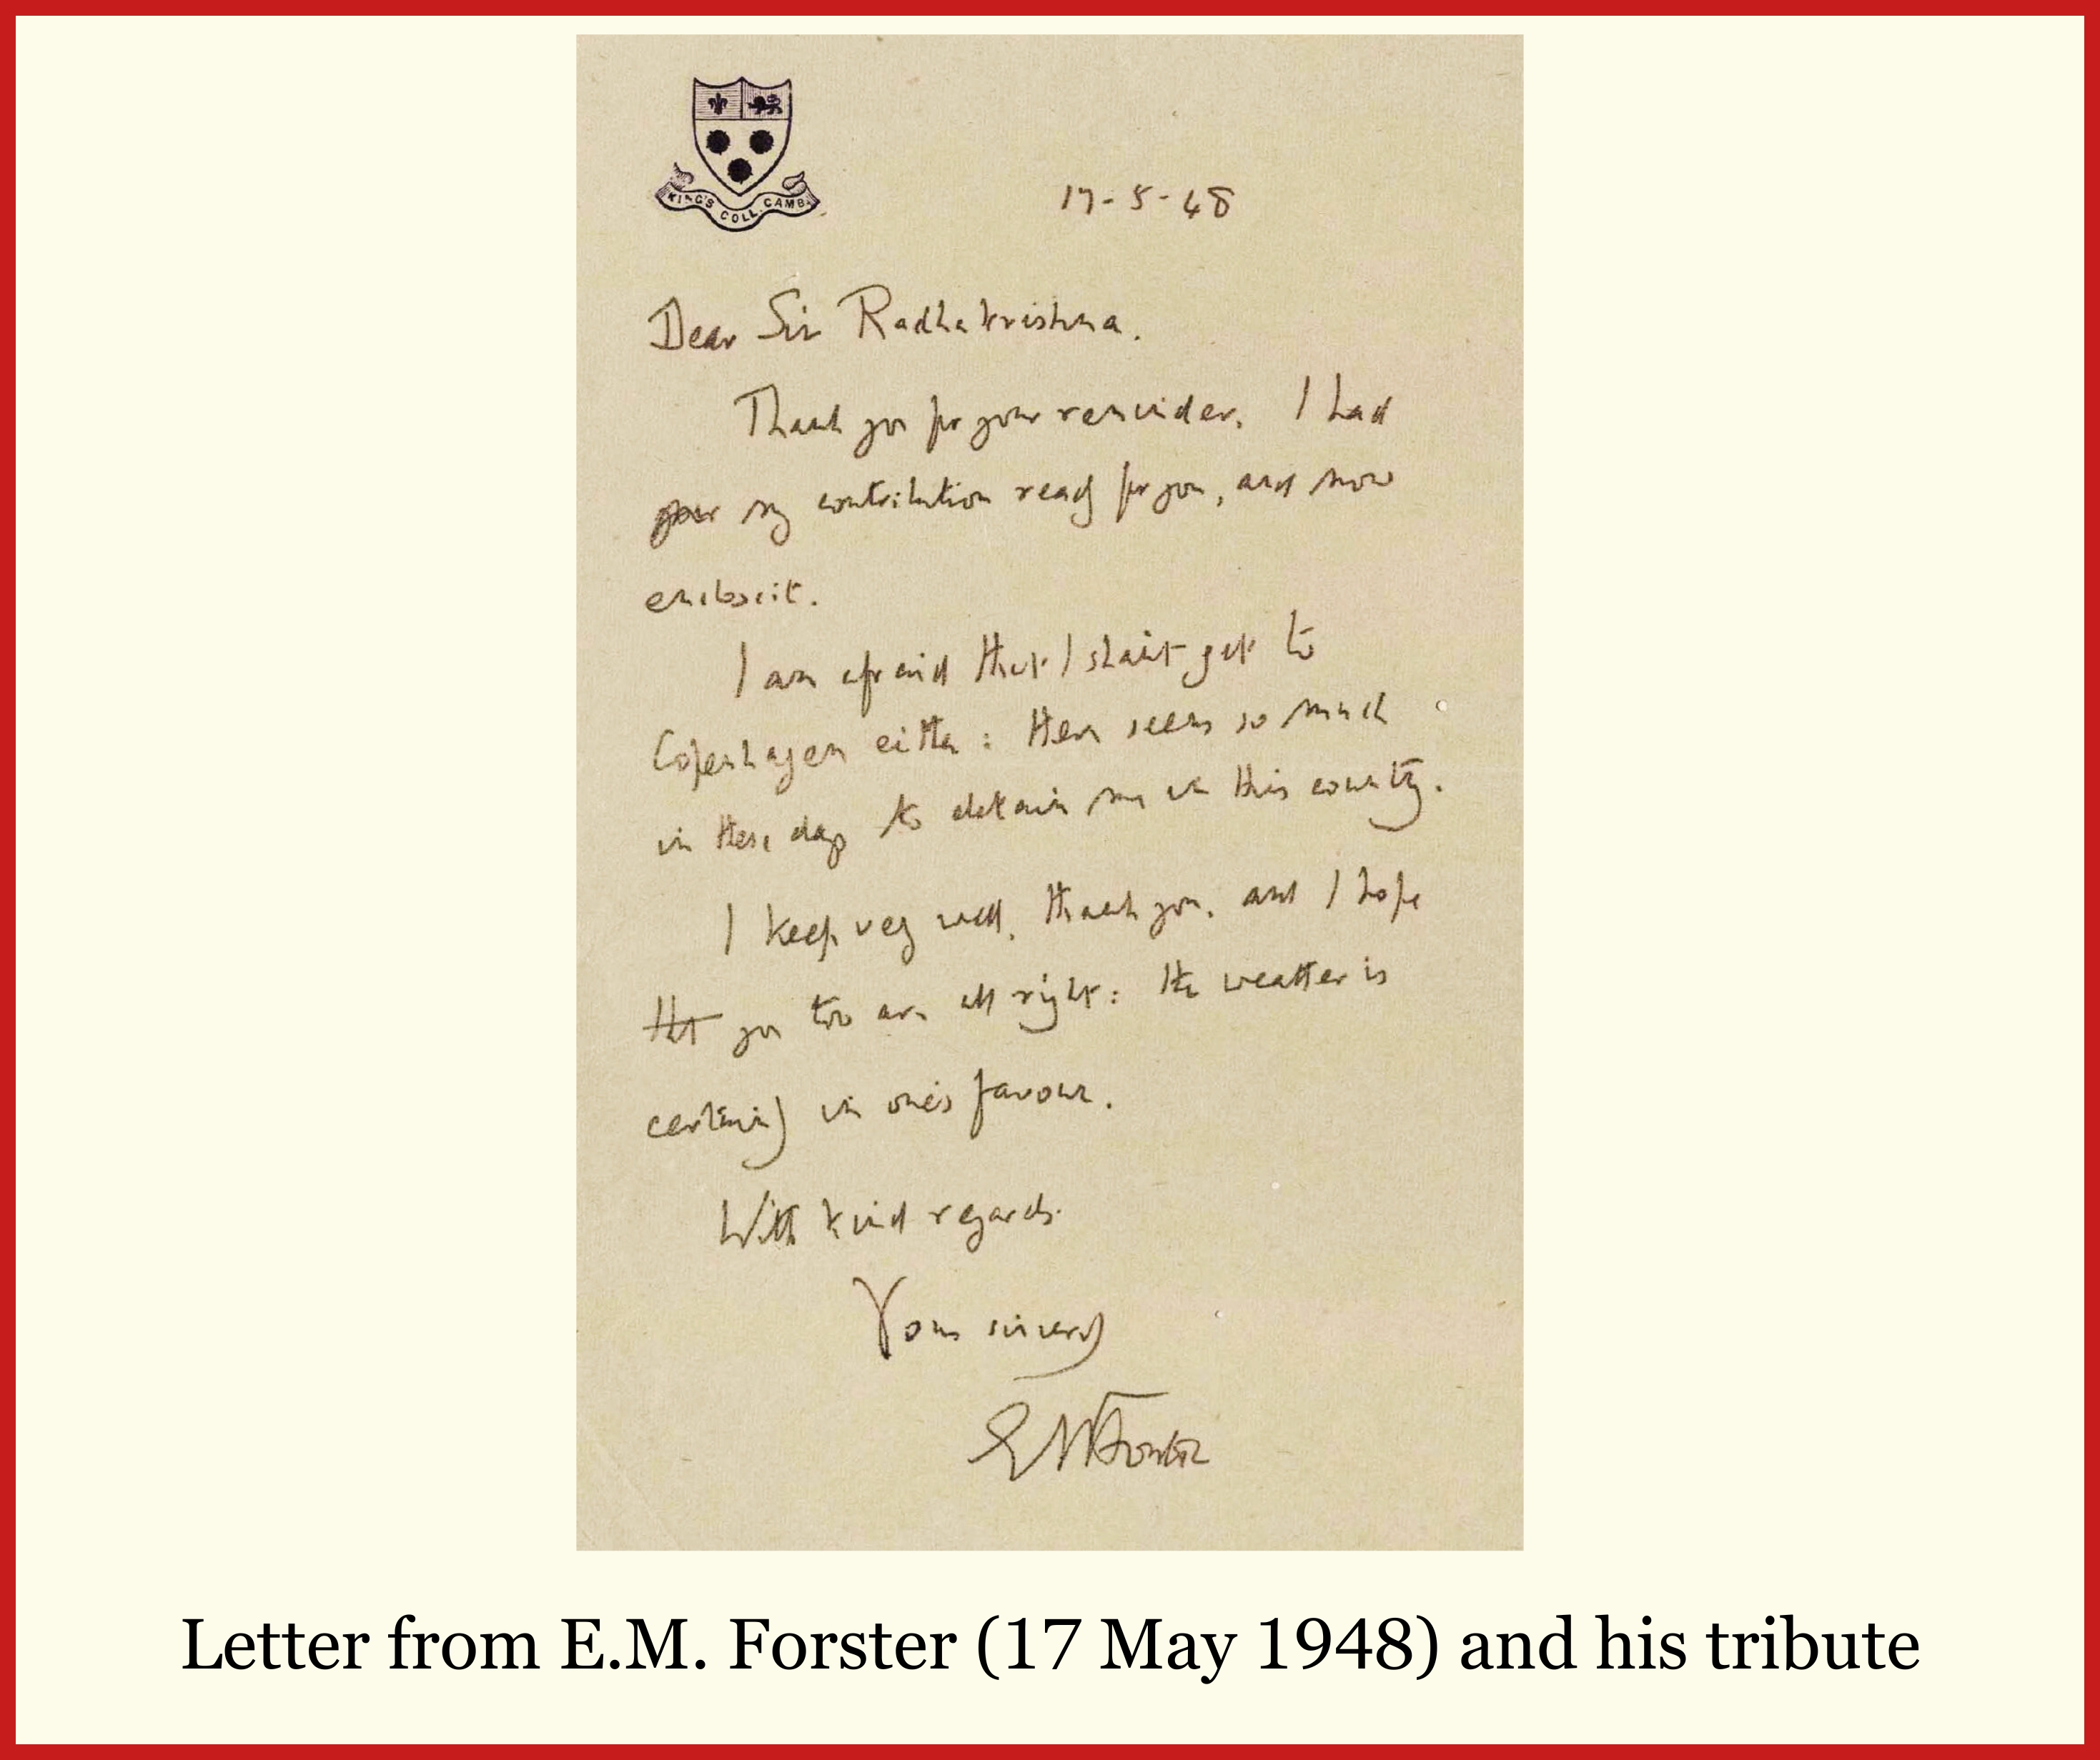 KING'S COLL. CAMB.
17-5-48
Dear Sir Radhakrishna.
Thank you for your reminder. I had
my contribution ready for you, and now
enclose it.
I am afraid that I shan't get to
Copenhagen either: there seems so much
in these days to detain me in this country.
I keep very well, thank you, and I hope
that you too are all right: the weather is
certainly in one's favour.
With kind regards.
Yours sincerely
EMForster
Letter from E.M. Forster (17 May 1948) and his tribute